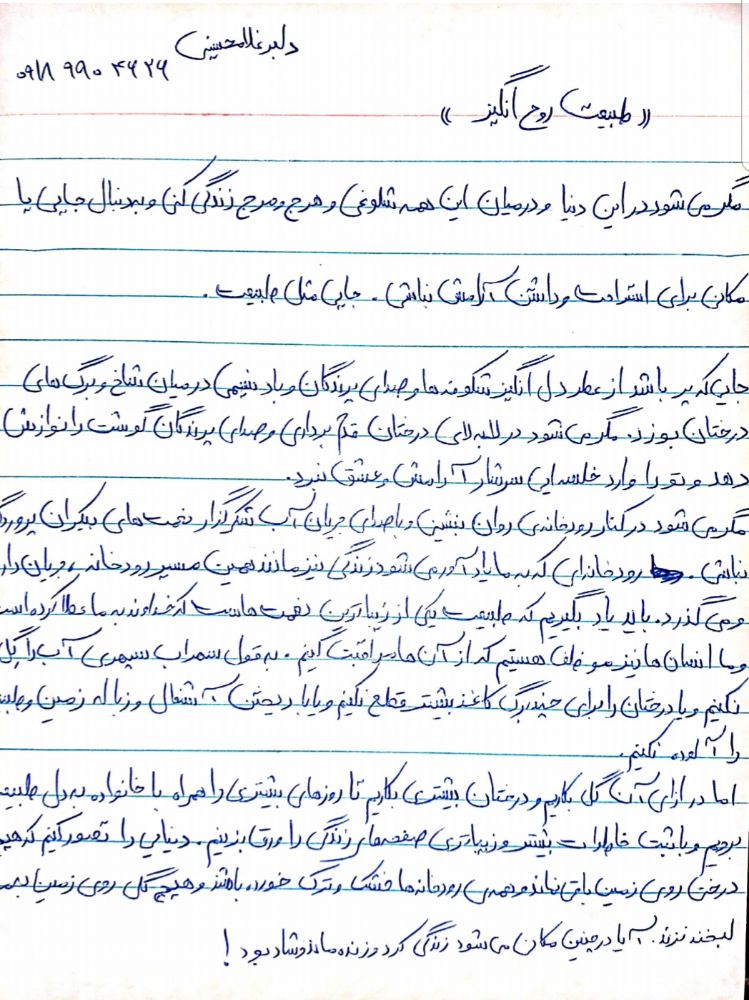 دلبر غلامحسینی
۰۹۱۹ ۹۹۰ ۴۶۲۶
(( طبیعت روح انگیز ))
مگر می شود در این دنیا و درمیان این همه شلوغی و هرج و مرج زندگی کنی و به دنبال جایی یا
مکانی برای استراحت و داشتن آرامش نباشی . جایی مثل طبیعت .
جایی که پر باشد از عطر دل انگیز شکوفه ها و صدای پرندگان و باد نسیمی درمیان شاخ و برگ های
درختان بوزد. مگر می شود در لابه لای درختان قدم برداری و صدای پرندگان گوشت را نوازش
دهد و تو را وارد خلسه ایی سرشار آرامش و عشق نبرد.
مگر می شود در کنار رودخانه ی روان بنشینی و با صدای جریان آب شکرگزار نعمت های بیکران
نباشی . رودخانه ای که به ما یادآور می شود زندگی نیز مانند همین مسیر رودخانه ، جریان دارد
و می گذرد. باید یاد بگیریم که طبیعت یکی از زیباترین نعمت هاست که خداوند به ما عطا کرده است
و ما انسان ها نیز موظف هستیم که از آن ها مراقبت کنیم . به قول سهراب سپهری آب را گل
نکنیم و یا درختان را برای چند برگ کاغذ بیشتر قطع نکنیم و یا با ریختن آشغال و زباله زمین و
را آلوده نکنیم.
اما در ازای آن گل بکاریم و درختان بیشتری بکاریم تا روزهای بیشتری را همراه با خانواده به دل
برویم و با ثبت خاطرات بیشتر و زیباتری صفحه های زندگی را ورق بزنیم . دنیایی را تصور کنیم که هیچ
درختی روی زمین باقی نماند و همه ی رودخانه ها خشک و ترک خورده باشند و هیچ گلی روی زمین
لبخند نزند. آیا در چنین مکان می شود زندگی کرد و زنده ماند و شاد بود !